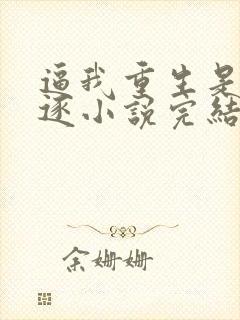 逼我重生是
逐小説完結
余姗姗